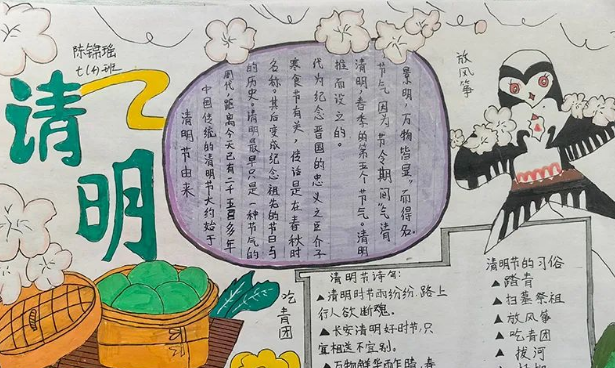 陈锦瑶
七(1)班
清明
清明节由来
中国传统的清明节大约始于
周代，距离今天已有二千五百多年
的历史。清明最早只是一种节气的
名称，其后变成纪念祖先的节日与
寒食节有关，传说是在春秋时
代为纪念晋国的忠义之臣介子
推而设立的。
清明，春季的第五个节气。清明
节气因为节令期间“气清
景明，万物皆显”而得名。
放风筝
吃青团
清明节诗句:
▲清明时节雨纷纷，路上
行人欲断魂。
▲长安清明好时节，只
宜相送不宜别。
清明节的习俗
▲踏青
▲扫墓祭祖
▲放风筝
▲吃青团
▲拔河